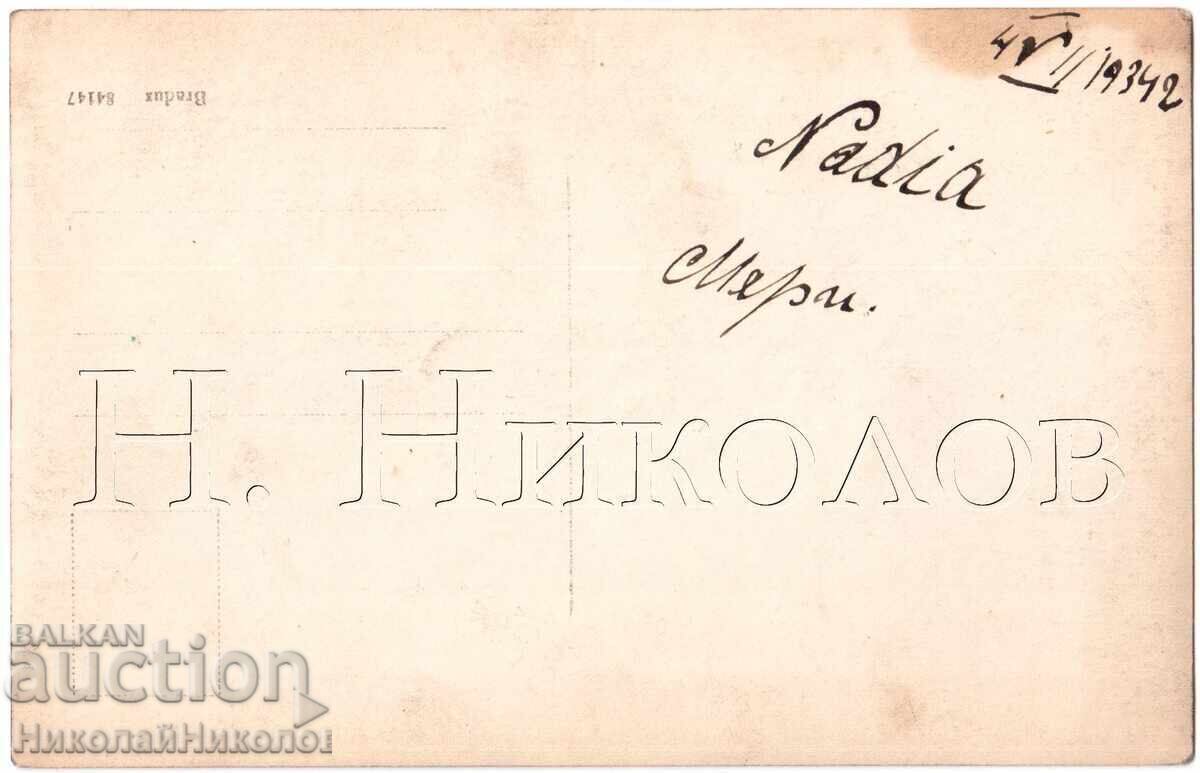 4 VII 1934 г
Nadia
Мери.
Bradux 84147
Н. Николов
BALKAN
auction
НиколайНиколов